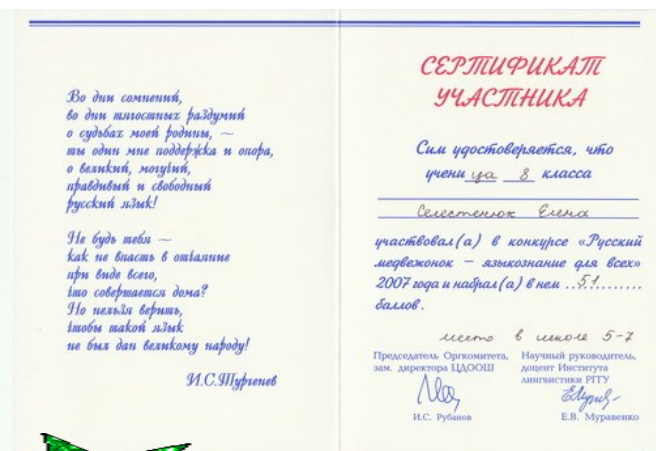 Во дни сомнений,
во дни тягостных раздумий
о судьбах моей родины, —
ты один мне поддержка и опора,
о великий, могучий,
правдивый и свободный
русский язык!
Не будь тебя —
как не впасть в отчаяние
при виде всего,
что совершается дома?
Но нельзя верить,
чтобы такой язык
не был дан великому народу!
И.С.Тургенев
СЕРТИФИКАТ
УЧАСТНИКА
Сим удостоверяется, что
учени ца 8 класса
Селестенюк Елена
участвовал(а) в конкурсе «Русский
медвежонок — языкознание для всех»
2007 года и набрал(а) в нем ..51........
баллов.
место в школе 5-7
Председатель Оргкомитета,
зам. директора ЦДООШ
И.С. Рубанов
Научный руководитель,
доцент Института
лингвистики РГГУ
Е.В. Муравенко